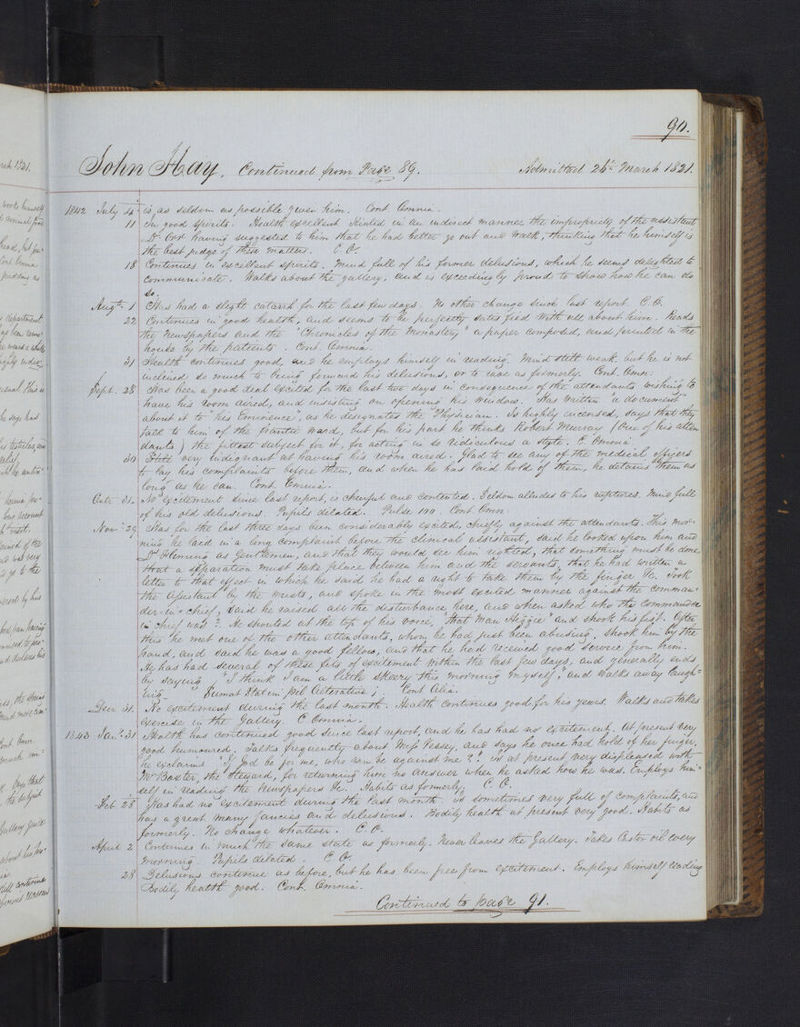 90.
John Hay. Continued from Page 89. Admitted 26th March 1821.
1842 July 4 is as seldom as possible given him. Cont Omnia.
11 In good spirits. Health excellent. Hinted in an indirect manner the impropriety of the assistant
Dr having suggested to him that he had better go out and walk, thinking that he himself is
the best judge of these matters. C. O.
18 Continues in excellent spirits. Mind full of his former delusions, which he seems delighted to
communicate. Walks about the gallery, and is exceedingly proud to show how he can do
so.
Augt. 1 Has had a slight catarrh for the last few days. No other change since last report. C. O.
22 Continues in good health, and seems to be perfectly satisfied with all about him. Reads
the Newspapers and the "Chronicles of the Monastery" a paper composed, and printed in the
house by the patients. Cont. Omnia.
31 Health continues good, and he employs himself in reading. Mind still weak but he is not
inclined so much to bring forward his delusions, or to rave as formerly. Cont. Omn.
Sept. 28 Has been a good deal excited for the last two days in consequence of the attendants wishing to
have his room aired, and insisting on opening his window. Has written "a document"
about it to "his Eminence", as he designates the Physician. Is highly incensed, says that they
talk to him of the frantic ward, but for his part he thinks Robert Murray (One of his atten
dants) the fittest subject for it, for acting in so ridiculous a style. C. Omnia.
30 Still very indignant at having his room aired. Glad to see any of the medical officers
to lay his complaints before them, and when he has laid hold of them, he detains them as
long as he can. Cont. Omnia.
Octr. 31. No excitement since last report, is cheerful and contented. Seldom alludes to his ruptures. Mind full
of his old delusions. Pupils dilated. Pulse 100. Cont Omn.
Novr. 29 Has for the last three days been considerably excited, chiefly against the attendants. This mor-
ning he laid in a long complaint before the clinical assistant, said he looked upon him and
Dr Fleming as Gentlemen, and that they would see him righted, that something must be done
that a separation must take place between him and the servants, that he had written a
letter to that effect in which he said he had a right to take them by the finger &c. Took
the assistant by the wrists, and spoke in the most excited manner against the comman-
der-in-chief, said he raised all the disturbance here, and when asked who the commander
in chief was? He shouted at the top of his voice, "that man Higgie" and shook his fist. After
this he met one of the other attendants, whom he had just been abusing, shook him by the
hand, and said he was a good fellow, and that he had received good service from him.
He has had several of these fits of excitement within the last few days, and generally ends
by saying, "I think I am a little skeery this morning myself," and walks away laugh-
ing. Cont Alia.
Decr. 31. No excitement during the last month. Health continues good for his years. Walks and takes
exercise in the Gallery. C. Omnia.
1843 Jany. 31 Health has continued good since last report, and he has had no excitement. At present very
good humoured. Talks frequently about Miss Pessey, and says he once had hold of her finger,
he exclaims "If God be for me, who can be against me"? is at present very displeased with
Mr Baxter, the Steward, for returning him no answer when he asked how he was. Employs him-
self in reading the Newspapers &c. Habits as formerly. C. O.
Feb 28 Has had no excitement during the last month. is sometimes very full of complaints, and
has a great many fancies and delusions. Bodily health at present very good. Habits as
formerly. No change whatever. C. O.
April 2 Continues in much the same state as formerly. Never leaves the Gallery. Takes Castor oil every
morning. Pupils dilated. C. O.
28 Delusions continue as before, but he has been free from excitement. Employs himself reading
Bodily health good. Cont. Omnia.
Continued to page 91.